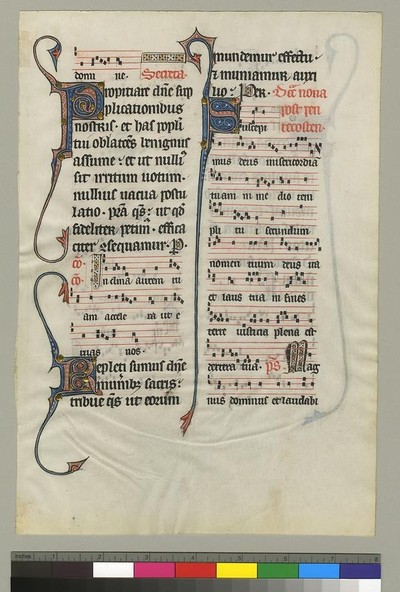 domi ne. Secreta.
Propitiare dñe sup
plicationibus
nostris. et has popli
tui oblatões benignus
assume. et ut nulli
sit irritum uotum.
nullius uacua postu
latio. pr̃a q̃s: ut qđ
fideliter petim. effica
citer ꝯsequamur. P.
Co. Inclina aurem tu
am accele ra ut e
ruas nos.
Repleti sumus dñe
muneribus sacris:
tribue q̃s ut eorum
mundemur effectu.
et muniamur auxi
lio. Per. Dñica nona
post pen
tecosten.
Suscepi
mus deus misericordiã
tuam in me dio tem
pli tu i secundum
nomen tuum deus ita
et laus tua in fines
terre iusticia plena est
dextera tua. ps. Mag
nus dominus et laudabi